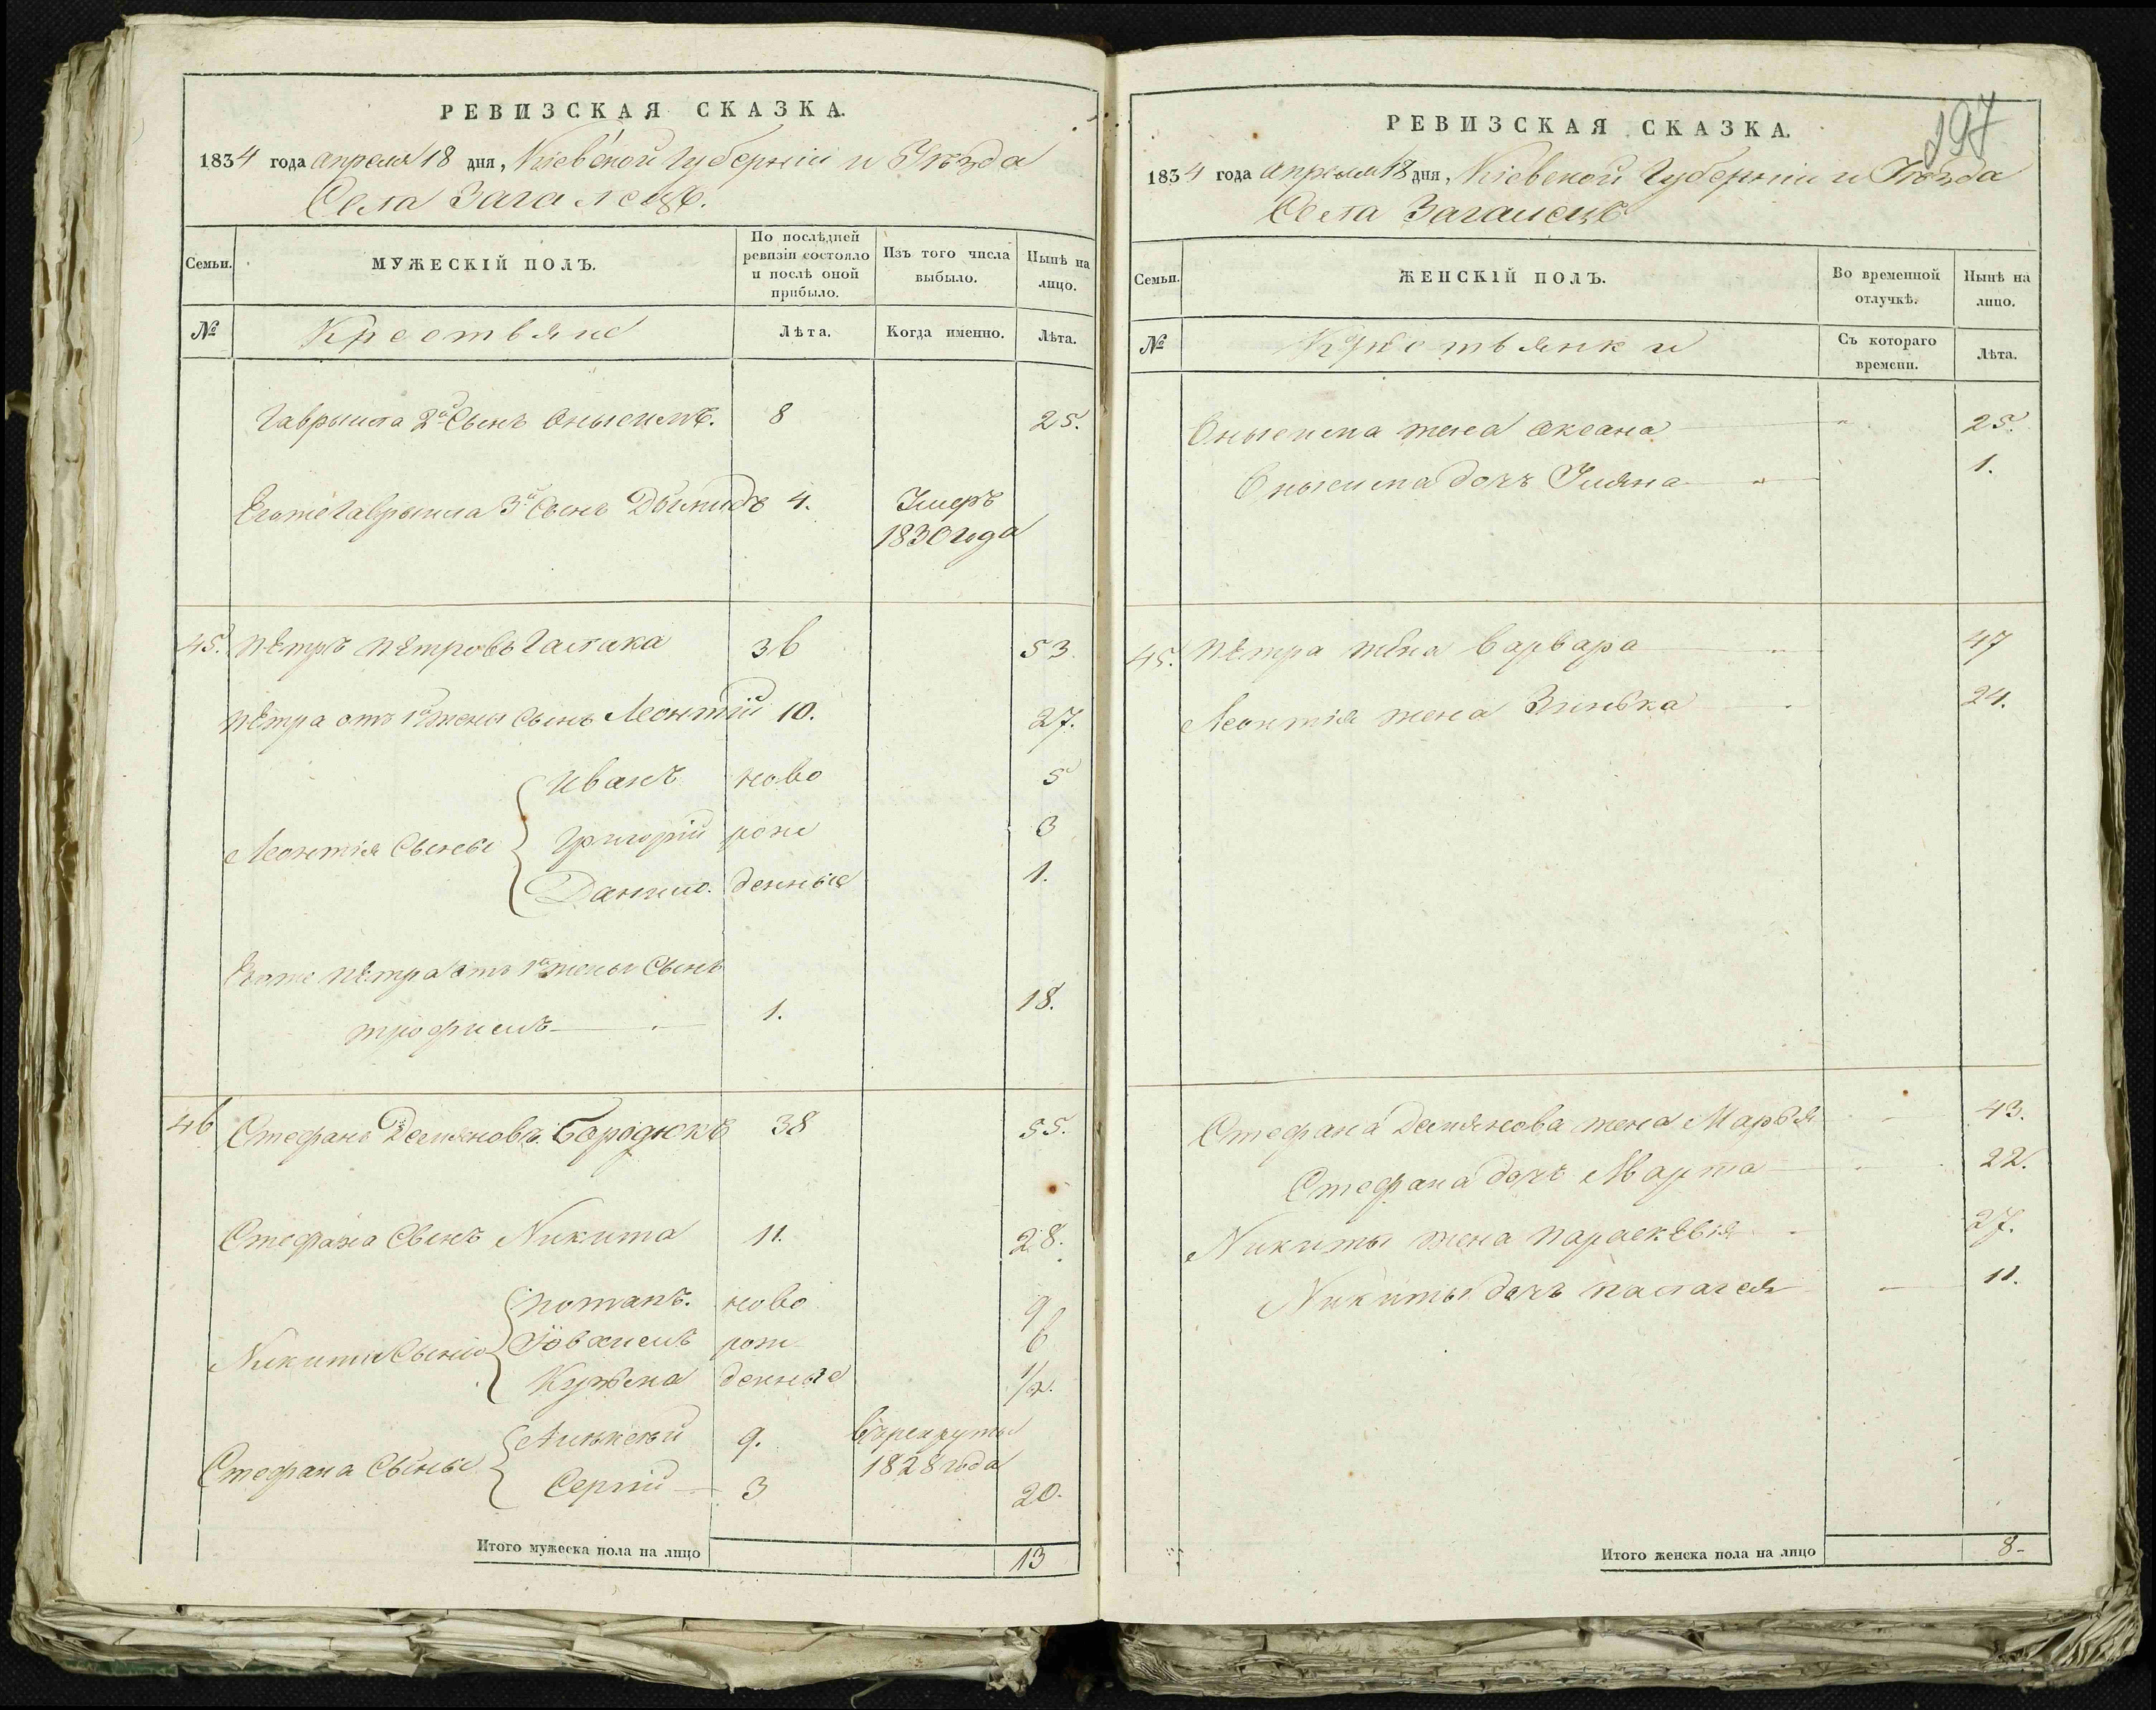 РЕВИЗСКАЯ СКАЗКА.
1834 года апреля 18 дня, Кіевской Губерніи и Уѣзда
Села Загалецъ.
Семьи.
МУЖЕСКІЙ ПОЛЪ.
По послѣдней ревизіи состояло и послѣ оной прибыло.
Изъ того числа выбыло.
Нынѣ на лицо.
№
Крестьяне
Лѣта.
Когда именно.
Лѣта.
Гаврыила 2й Сынъ Онысимъ. 8 25.
Егоже Гаврыила 3й Сынъ 4. Умеръ
1830 года
45. Пѣтръ Пѣтровъ 36 53
Пѣтра отъ 1й жены Сынъ Леонтій 10. 27.
Иванъ ново 5
Леонтія Сыновья Григорій рож 3
Данило. денные 1.
Егоже Пѣтра отъ 1й жены Сынъ
Трофимъ 1. 18.
46 Стефанъ Демяновъ Бородюкъ 38 55.
Стефана Сынъ Никита 11. 28.
Потапъ. ново 9
Никиты Сыны Іовхимъ рож 6
Кузьма денные 1/2.
Стефана Сыны 9. въ рекруты
1828 года
Сергій 3 20.
Итого мужеска пола на лицо 13
197
РЕВИЗСКАЯ СКАЗКА.
1834 года апреля 18 дня, Кіевской Губерніи и Уѣзда
Села Загалецъ
Семьи.
ЖЕНСКІЙ ПОЛЪ.
Во временной отлучкѣ.
Нынѣ на лицо.
№
Крестьянки
Съ котораго времени.
Лѣта.
Онысима жена Оксана " 25.
Онысима дочъ Уляна " 1.
45. Пѣтра жена Варвара " 47
Леонтія жена Зинька 24.
Стефана Демянова жена Марья 43.
Стефана дочъ Марта 22.
Никиты жена Параскѣвія 27.
Никиты дочъ Палагея 11.
Итого женска пола на лицо 8-